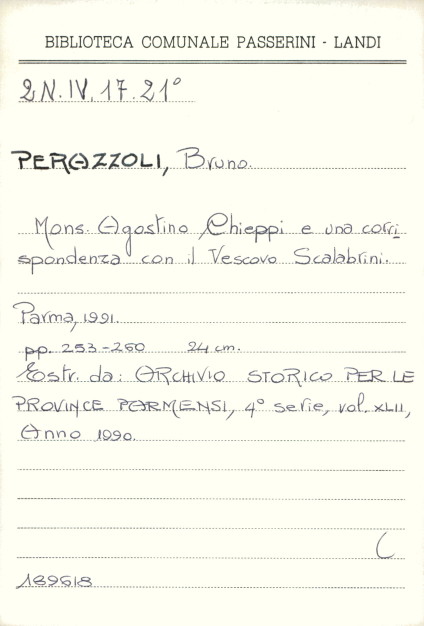 BIBLIOTECA COMUNALE PASSERINI - LANDI
2N.IV.17.21°
PERAZZOLI, Bruno.
Mons. Agostino Chieppi e una corri
spondenza con il Vescovo Scalabrini.
Parma, 1991.
pp. 253-260 24 cm.
Estr. da: ARCHIVIO STORICO PER LE
PROVINCE PARMENSI, 4° serie, vol. XLII,
Anno 1990.
C
189618